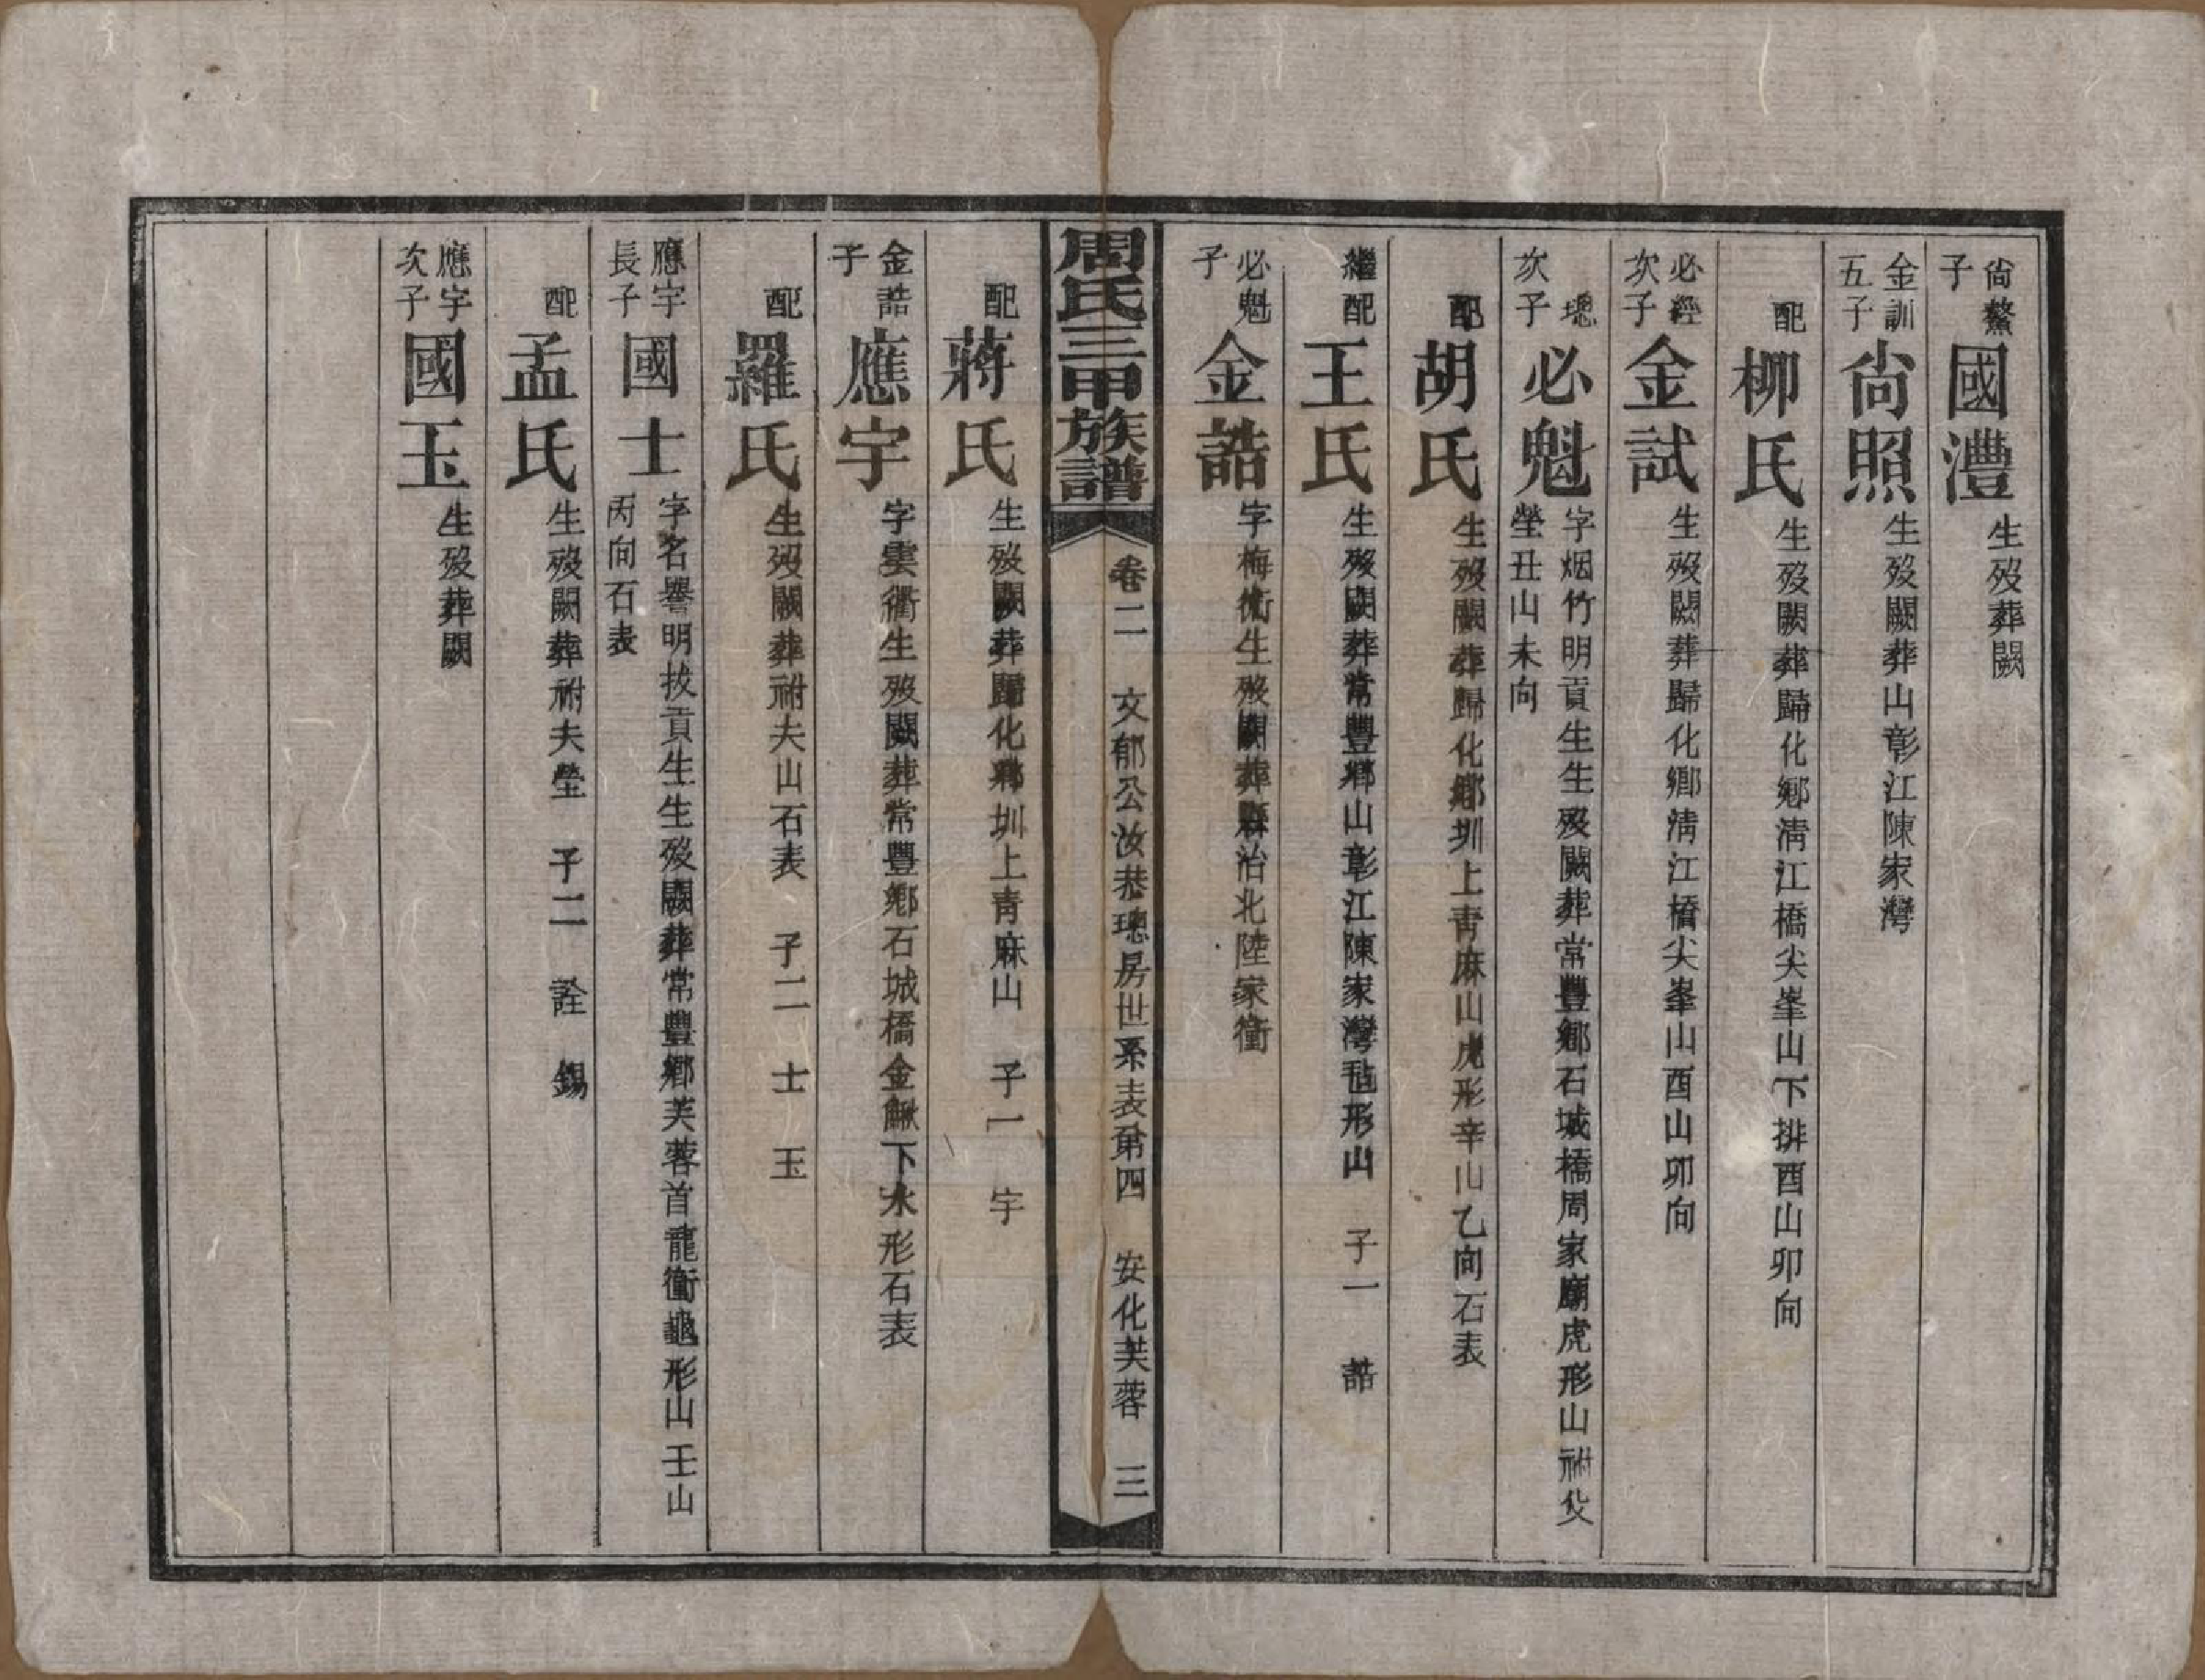 尙鰲子 國灃 生歿葬闕
金訓五子 尙照 生歿闕葬山彰江陳家灣
配 柳氏 生歿闕葬歸化鄉淸江橋尖峯山下排酉山卯向
必經次子 金試 生歿闕葬歸化鄉淸江橋尖峯山酉山卯向
璁次子 必魁 字烟竹明貢生生歿闕葬常豐鄉石城橋周家廟虎形山祔父
塋丑山未向
配 胡氏 生歿闕葬歸化鄉圳上靑麻山虎形辛山乙向石表
繼配 王氏 生歿闕葬常豐鄉山彰江陳家灣毡形山 子一 誥
必魁子 金誥 字梅衡生歿闕葬縣治北陸家衝
周氏三甲族譜 卷二 文郁公汝恭璁房世系表第四 安化芙蓉 三
配 蔣氏 生歿闕葬歸化鄉圳上靑麻山 子一 宇
金誥子 應宇 字雲衢生歿闕葬常豐鄉石城橋金鰍下水形石表
配 羅氏 生歿闕葬祔夫山石表 子二 士 玉
應宇長子 國士 字名譽明拔貢生生歿闕葬常豐鄉芙蓉首龍衝龜形山壬山
丙向石表
配 孟氏 生歿闕葬祔夫塋 子二 詮 錫
應宇次子 國玉 生歿葬闕